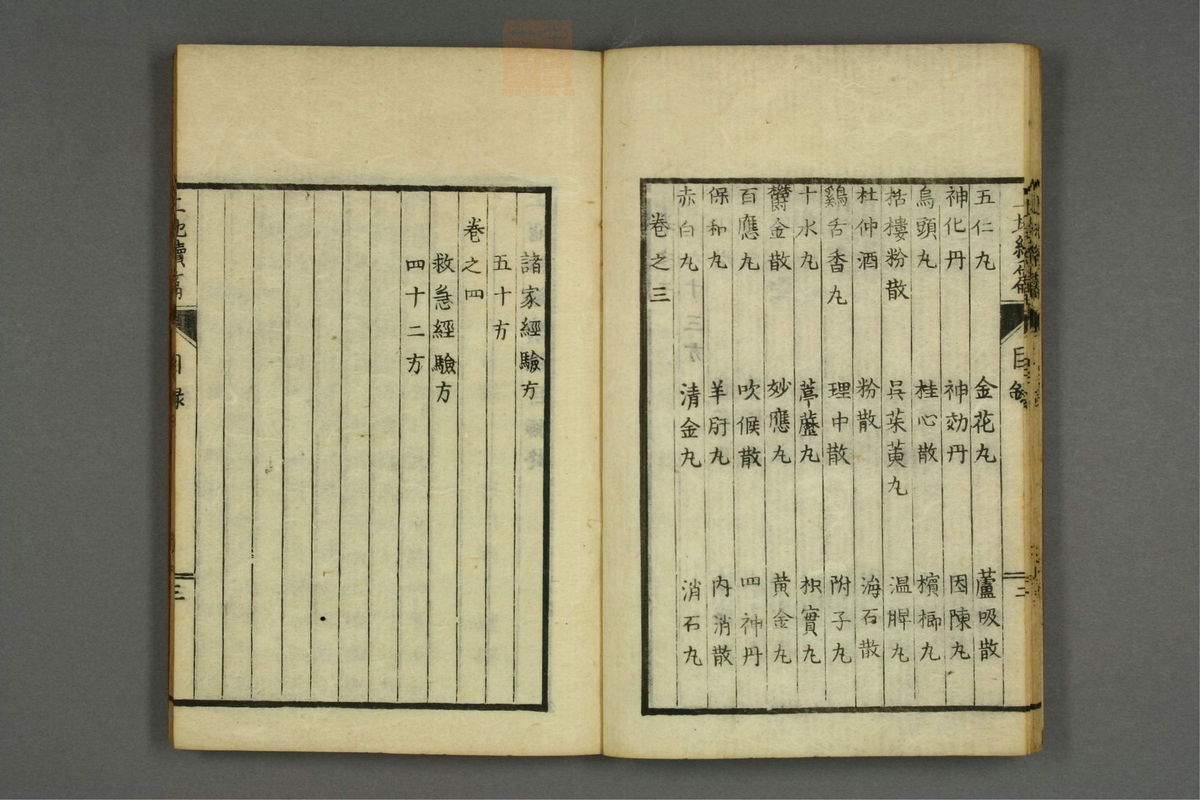 五仁丸 金花丸 蘆吸散
神化丹 神効丹 因陳丸
烏頭丸 桂心散 檳榔丸
栝樓粉散 呉茱萸丸 温脾丸
杜仲酒 粉散 海石散
鷄舌香丸 理中散 附子丸
十水丸 葶藶丸 枳實丸
欝金散 妙應丸 黄金丸
百應丸 吹喉散 四神丹
保和丸 羊肝丸 内消散
赤白丸 清金丸 消石丸
卷之三
諸家經驗方
五十方
卷之四
救急經驗方
四十二方
目録
三